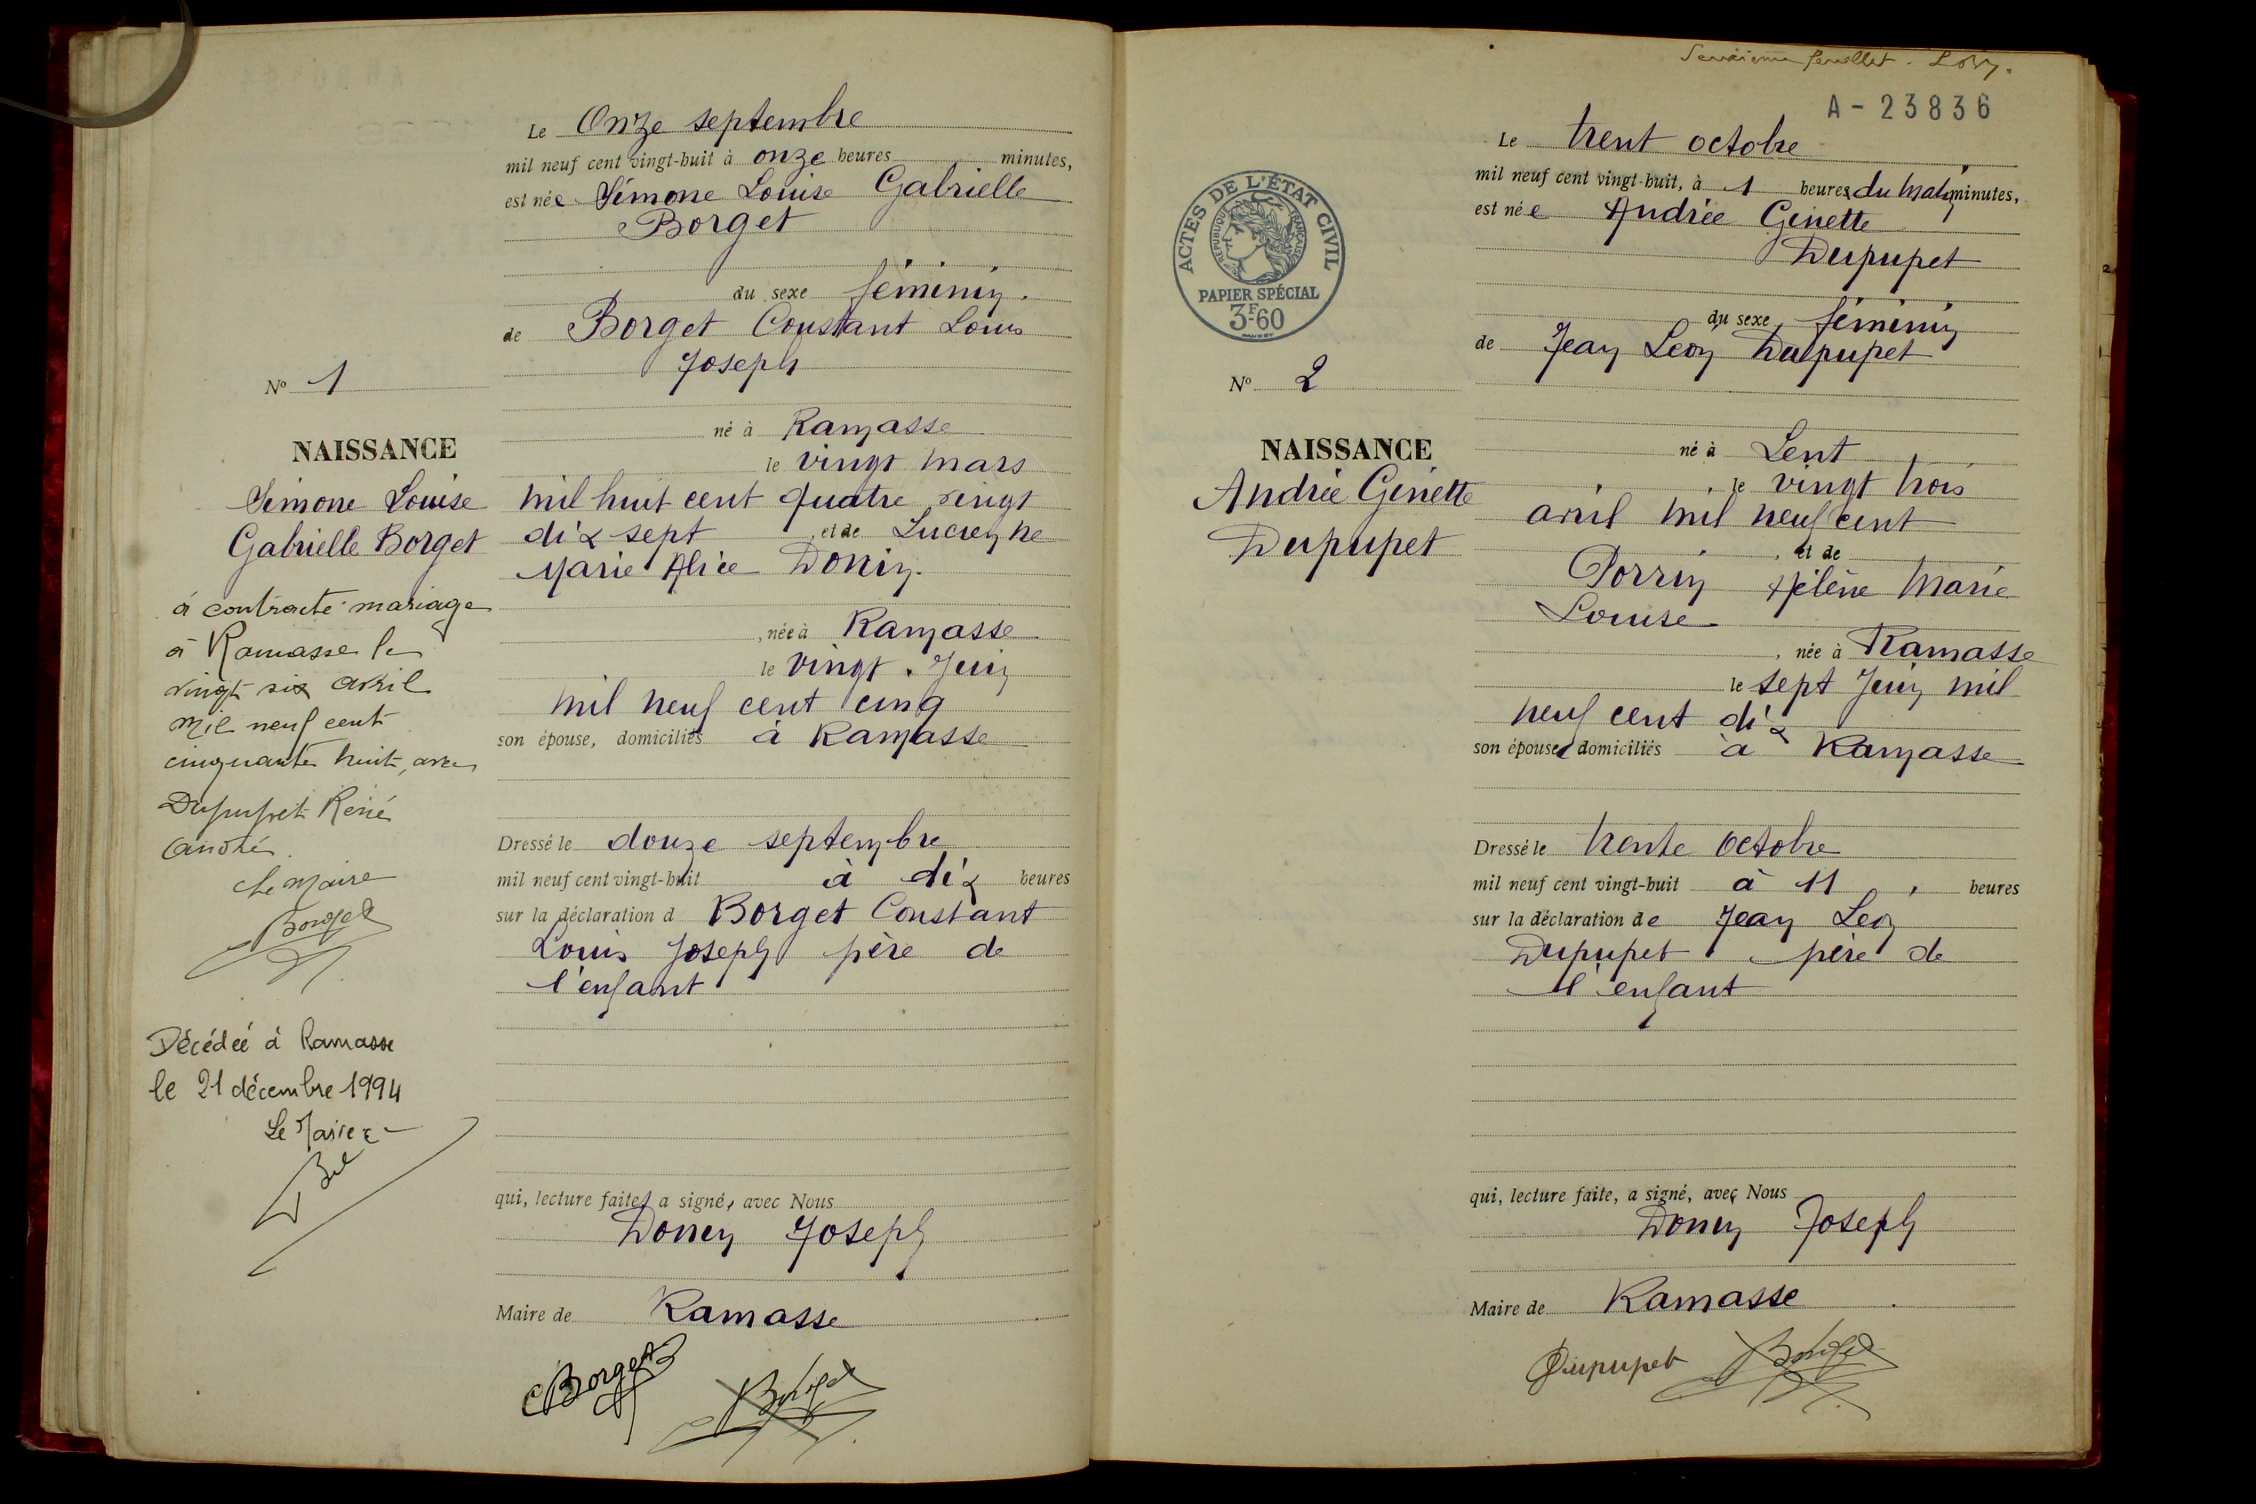 Le Onze septembre
mil neuf cent vingt-huit à onze heures minutes,
est née Simone Louise Gabrielle
Borget
du sexe féminin.
de Borget Constant Louis
Joseph
né à Ramasse
le vingt mars
mil huit cent quatre vingt
dix sept , et de Lucienne
Marie Alice Donin.
, née à Ramasse
le vingt Juin
mil neuf cent cinq
son épouse, domiciliés à Ramasse
Dressé le douze septembre
mil neuf cent vingt-huit à dix heures
sur la déclaration d Borget Constant
Louis Joseph père de
l'enfant
qui, lecture faite, a signé, avec Nous
Donin Joseph
Maire de Ramasse
Borget
N° 1
NAISSANCE
Simone Louise
Gabrielle Borget
a contracté mariage
à Ramasse le
vingt six avril
mil neuf cent
cinquante huit, avec
Dupupet René
André
Le Maire
Décédée à Ramasse
le 21 décembre 1994
Le Maire
feuillet.
A-23836
Le trent octobre
mil neuf cent vingt-huit, à 1 heures du matin minutes,
est née Andrée Ginette
Dupupet
du sexe féminin
de Jean Leon Dupupet
né à Lent
le vingt trois
avril mil neuf cent
, et de
Perrin Hélène Marie
Louise
, née à Ramasse
le sept Juin mil
neuf cent dix
son épouse, domiciliés à Ramasse
Dressé le trente octobre
mil neuf cent vingt-huit à 11 heures
sur la déclaration de Jean Leon
Dupupet père de
l'enfant
qui, lecture faite, a signé, avec Nous
Donin Joseph
Maire de Ramasse
Dupupet
ACTES DE L'ÉTAT CIVIL
RÉPUBLIQUE FRANÇAISE
PAPIER SPÉCIAL
3F60
N° 2
NAISSANCE
Andrée Ginette
Dupupet